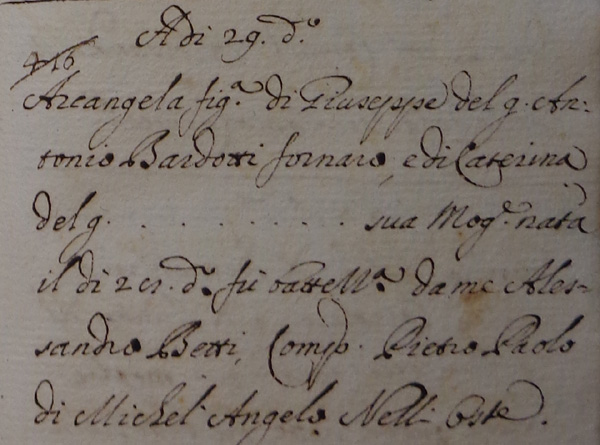 Adi 29. d.º
416
Arcangela fig.ª di Giuseppe del q. An-
tonio Bardotti fornaro, e di Caterina
del q. . . . . . . . . . . sua Mog.e nata
il di d.º fù batteza.ª da me Ales-
sandro Betti, Comp. Pietro Paolo
di Michel Angelo Nelli Oste.